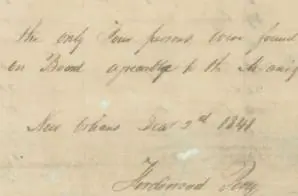 the only four persons were found
on Board agreeably to the Manif
New Orleans Decr 2nd 1841
Ferdinand